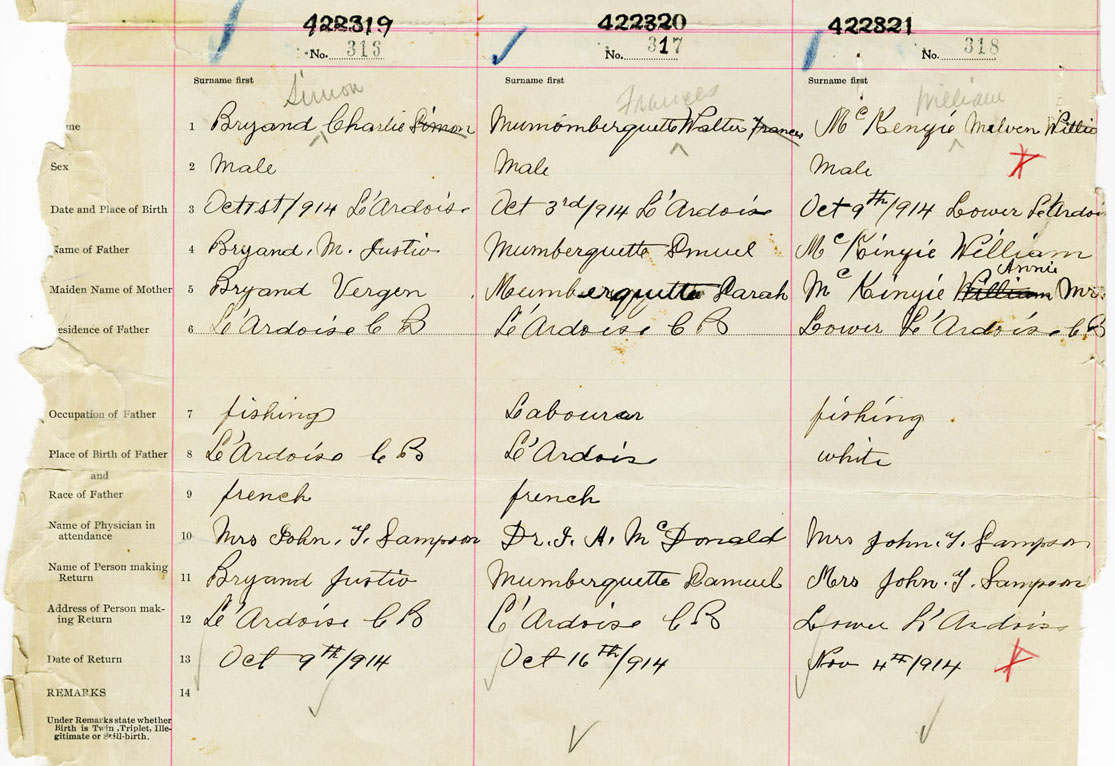 422319 422320 422321
No. 316 No. 317 No. 318
Surname first Surname first Surname first
Simon Frances William
1 Bryand Charlie Simon Mumomberquette Walter Frances Mc Kenyie Melven Willia
Sex 2 Male Male Male
Date and Place of Birth 3 Oct 1st/914 L'Ardoise Oct 3rd/914 L'Ardoise Oct 9th/914 Lower L'Ardois
Name of Father 4 Bryand, M. Justio Mumberquette Dmuel Mc Kinyie William
Annie
Maiden Name of Mother 5 Bryand Vergen Mumberquette Sarah Mc Kinyie William Mrs.
esidence of Father 6 L'Ardoise C B L'Ardoise C B Lower L'Ardoise C B
Occupation of Father 7 fishing Labourer fishing
Place of Birth of Father 8 L'Ardoise C B L'Ardois white
and
Race of Father 9 french french
Name of Physician in
attendance 10 Mrs John. T. Sampson Dr. J. A. McDonald Mrs John. T. Sampson
Name of Person making
Return 11 Bryand Justio Mumberquette Damuel Mrs John. T. Sampson
Address of Person mak-
ing Return 12 L'Ardoise C B L'Ardoise C B Lower L'Ardois
Date of Return 13 Oct 9th/914 Oct 16th/914 Nov 4th/914
REMARKS 14
Under Remarks state whether
Birth is Twin, Triplet, Ille-
gitimate or Still-birth.